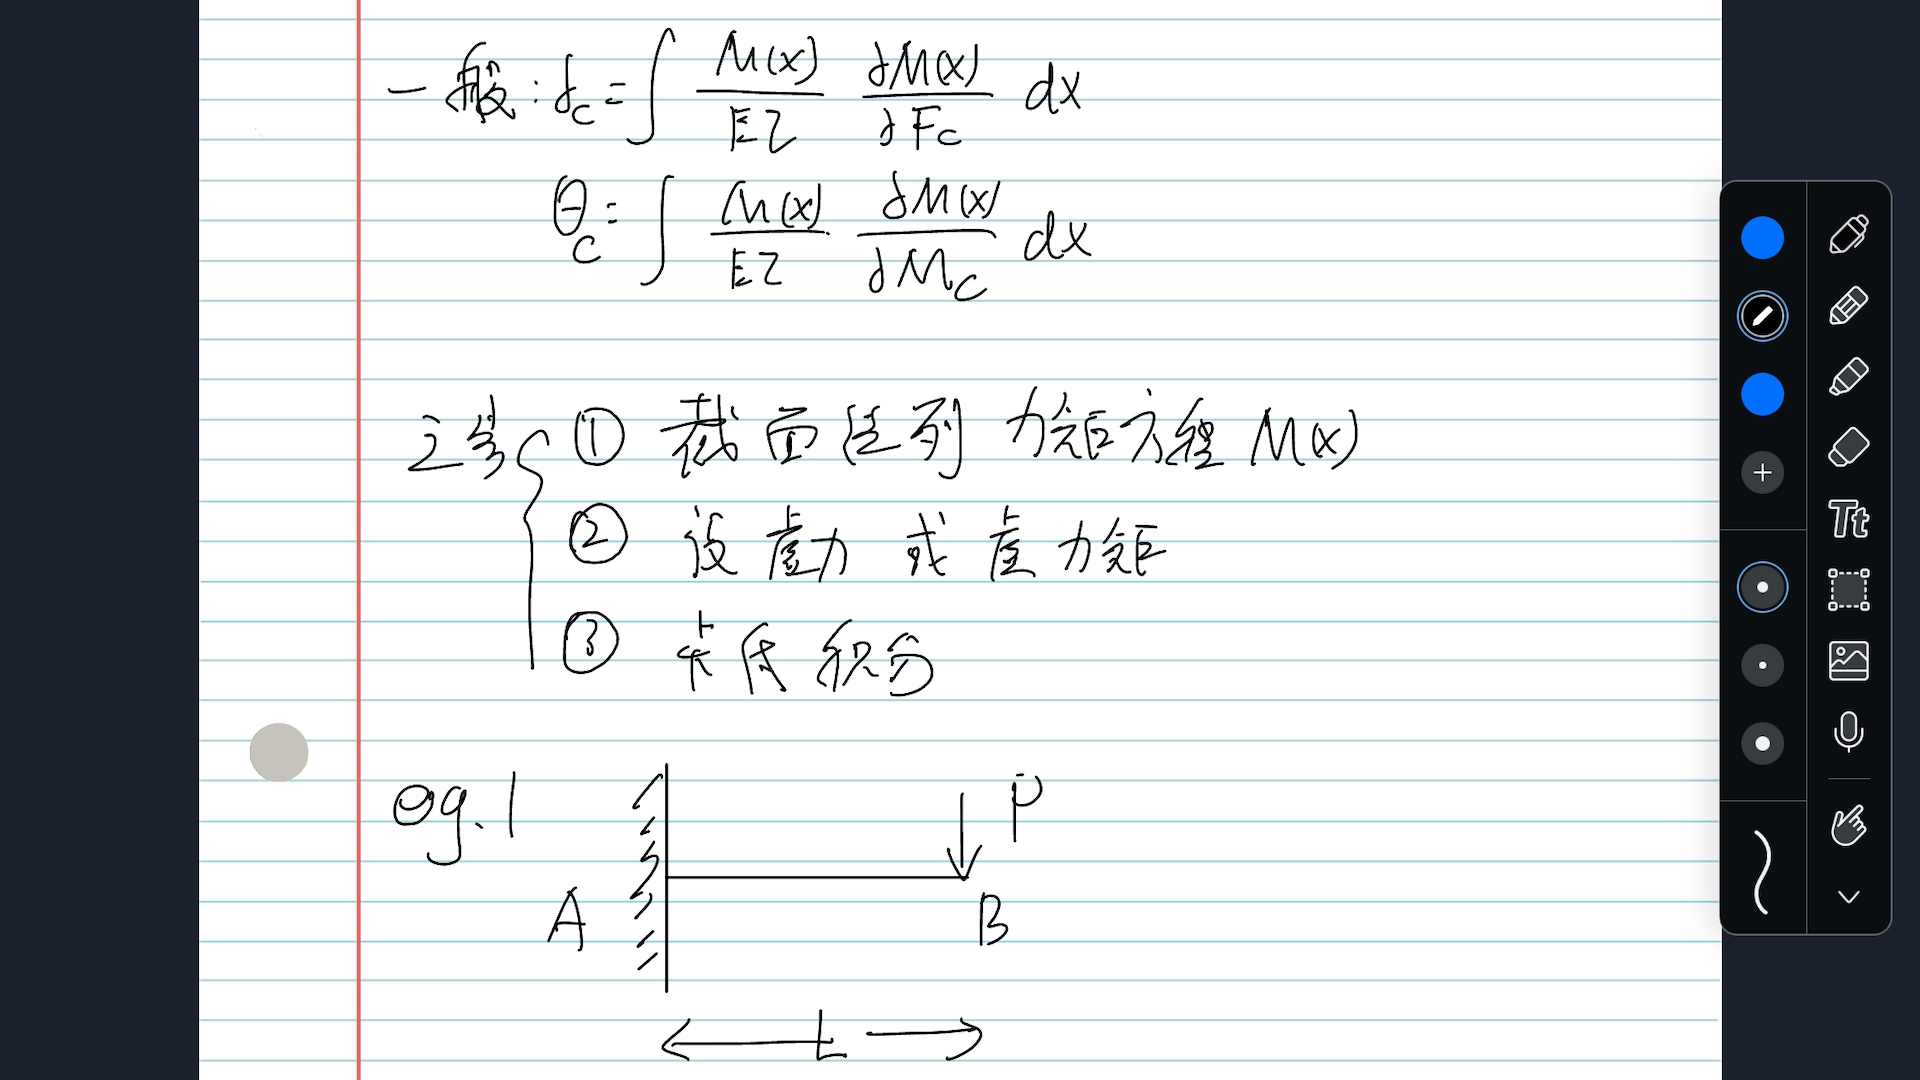 一般: δc = ∫ M(x)/EI ∂M(x)/∂Fc dx
θc = ∫ M(x)/EI ∂M(x)/∂Mc dx
① 截面法列 力矩方程 M(x)
② 设虚力 或 虚力矩
③ 卡氏积分
eg. 1
P
A
B
L
Tt